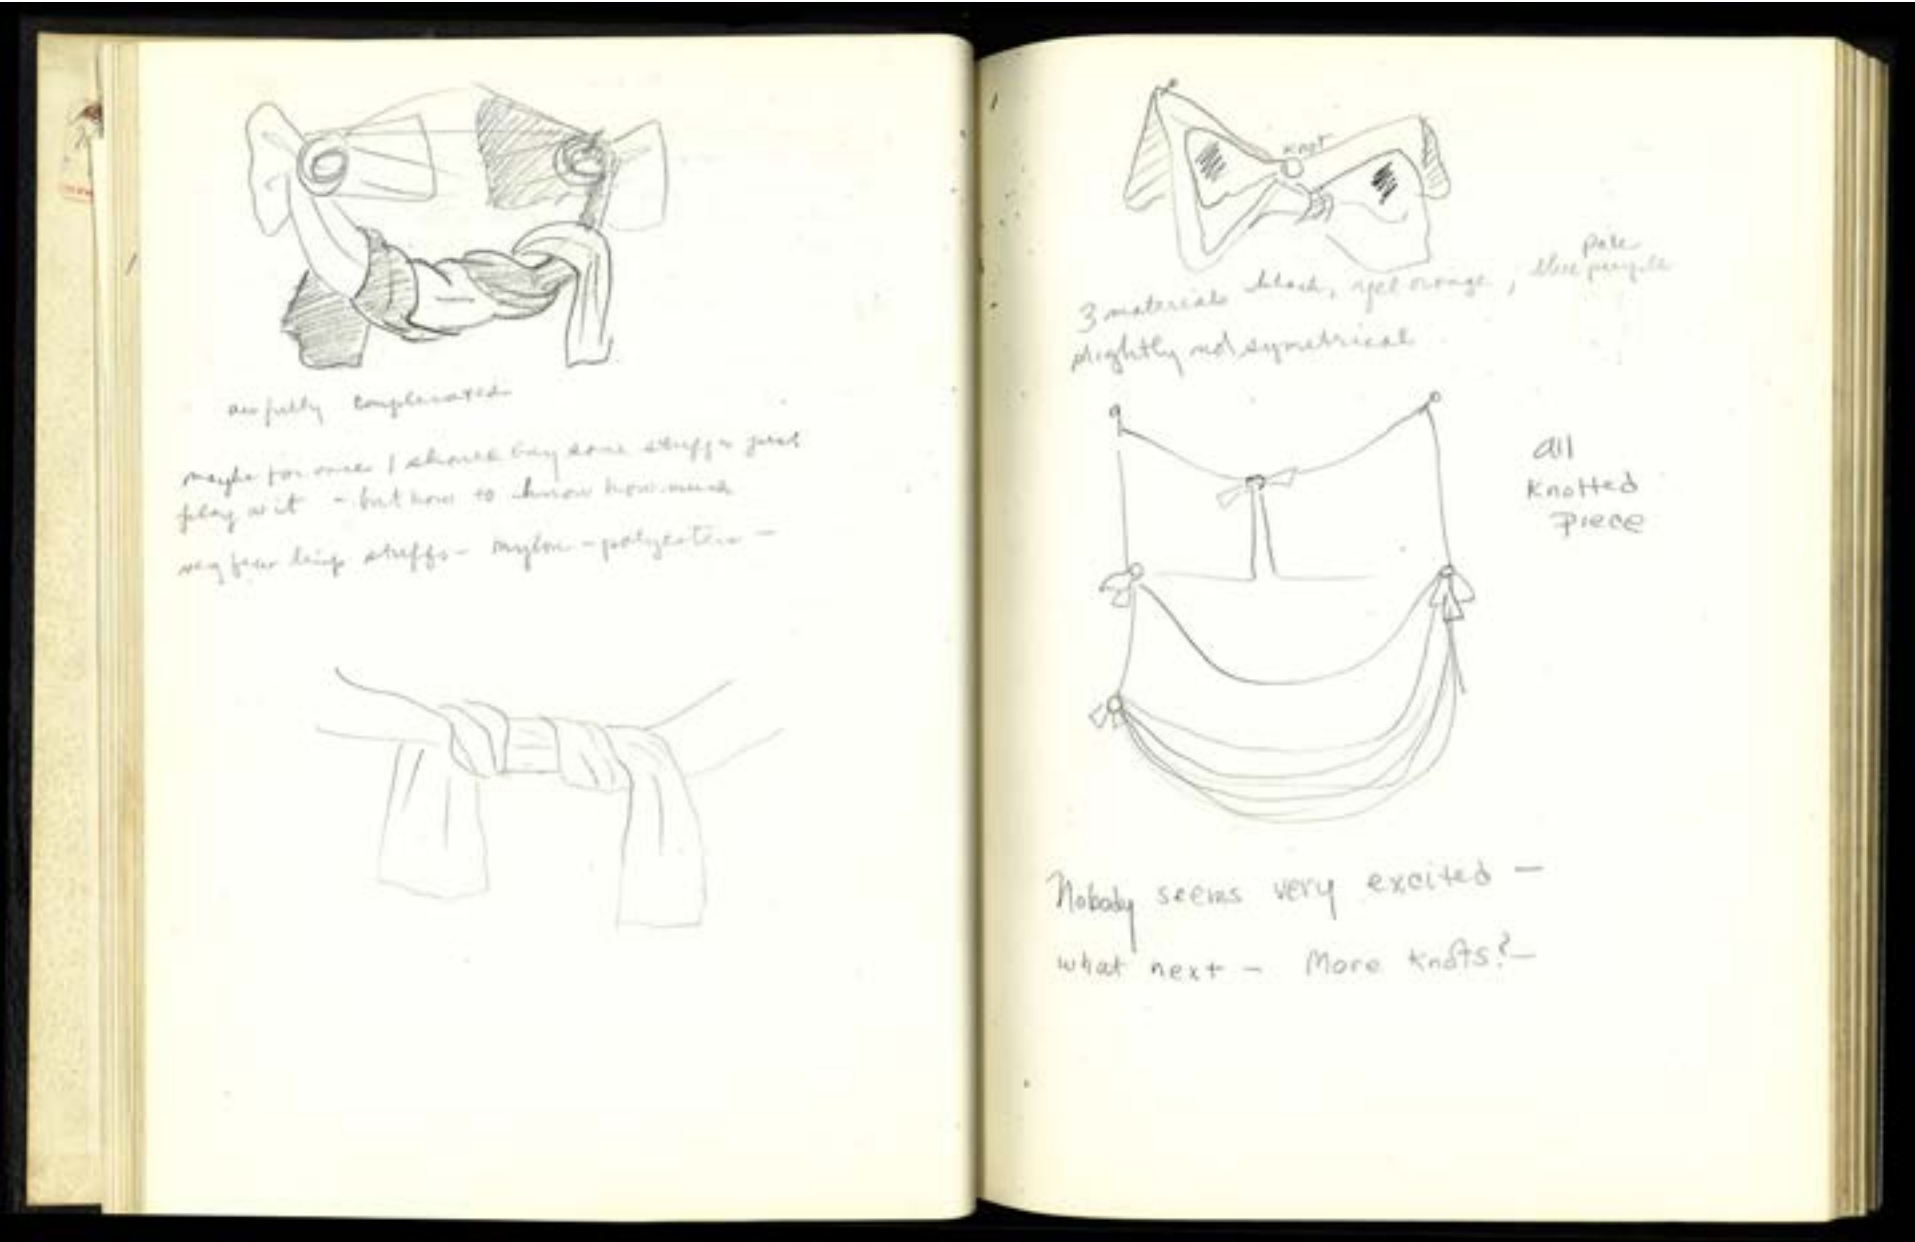 awfully complicated
maybe for once I should buy some stuff & just
play w it - but how to know how much
very few limp stuffs - nylon - polyester -
Knot
pale
3 materials black, yel orange, blue purple
slightly not symetrical
all
Knotted
Piece
Nobody seems very excited —
what next — More knots? —